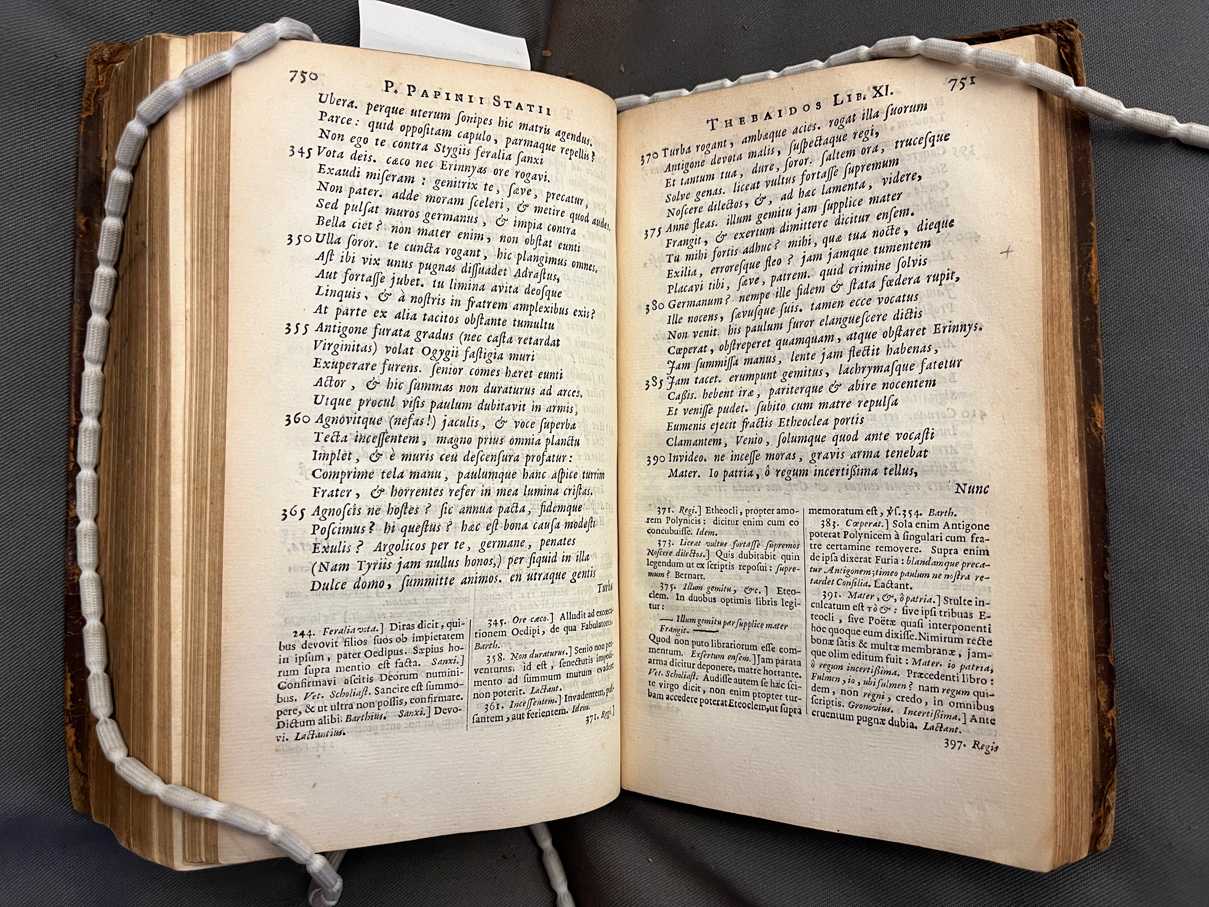 750
P. PAPINII STATII
Ubera. perque uterum sonipes hic matris agendus.
Parce: quid oppositam capulo, parmaque repellis?
Non ego te contra Stygiis feralia sanxi
345 Vota deis. cæco nec Erinnyas ore rogavi.
Exaudi miseram: genitrix te, sæve, precatur,
Non pater. adde moram sceleri, & metire quod audes.
Sed pulsat muros germanus, & impia contra
Bella ciet? non mater enim, non obstat eunti
350 Ulla soror. te cuncta rogant, hic plangimus omnes.
Ast ibi vix unus pugnas dissuadet Adrastus,
Aut fortasse jubet. tu limina avita deosque
Linquis, & à nostris in fratrem amplexibus exis?
At parte ex alia tacitos obstante tumultu
355 Antigone furata gradus (nec casta retardat
Virginitas) volat Ogygii fastigia muri
Exuperare furens. senior comes hæret eunti
Actor, & hic summas non duraturus ad arces.
Utque procul visis paulum dubitavit in armis,
360 Agnovitque (nefas!) jaculis, & voce superba
Tecta incessentem, magno prius omnia planctu
Implet, & è muris ceu descensura profatur:
Comprime tela manu, paulumque hanc aspice turrim
Frater, & horrentes refer in mea lumina cristas.
365 Agnoscis ne hostes? sic annua pacta, fidemque
Poscimus? hi questus? hæc est bona causa modesti
Exulis? Argolicos per te, germane, penates
(Nam Tyriis jam nullus honos,) per siquid in illa
Dulce domo, summitte animos. en utraque gentis
Turba
244. Feralia vota.] Diras dicit, qui-
bus devovit filios suos ob impietatem
in ipsum, pater Oedipus. Sæpius ho-
rum supra mentio est facta. Sanxi.]
Confirmavi ascitis Deorum numini-
bus. Vet. Scholiast. Sancire est summo-
pere, & ut ultra non possis, confirmare.
Dictum alibi: Barthius. Sanxi.] Devo-
vi. Lactantius.
345. Ore cæco.] Alludit ad execra-
tionem Oedipi, de qua Fabulatores.
Barth.
358. Non duraturus.] Senio non per-
venturus. id est, senectutis impedi-
mento ad summum murum evadere
non poterit. Lactant.
361. Incessentem.] Invadentem, pul-
santem, aut ferientem. Idem.
371. Regi.]
THEBAIDOS LIB. XI.
751
370 Turba rogant, ambæque acies. rogat illa suorum
Antigone devota malis, suspectaque regi,
Et tantum tua, dure, soror. saltem ora, trucesque
Solve genas. liceat vultus fortasse supremum
Noscere dilectos, &, ad hæc lamenta, videre,
375 Anne fleas. illum gemitu jam supplice mater
Frangit, & exertum dimittere dicitur ensem.
Tu mihi fortis adhuc? mihi, quæ tua nocte, dieque
Exilia, erroresque fleo? jam jamque tumentem
Placavi tibi, sæve, patrem. quid crimine solvis
380 Germanum? nempe ille fidem & stata fœdera rupit,
Ille nocens, sævusque suis. tamen ecce vocatus
Non venit. his paulum furor elanguescere dictis
Cœperat, obstreperet quamquam, atque obstaret Erinnys.
Jam summissa manus, lente jam flectit habenas,
385 Jam tacet. erumpunt gemitus, lachrymasque fatetur
Cassis. hebent iræ, pariterque & abire nocentem
Et venisse pudet. subito cum matre repulsa
Eumenis ejecit fractis Etheoclea portis
Clamantem, Venio, solumque quod ante vocasti
390 Invideo. ne incesse moras, gravis arma tenebat
Mater. Io patria, ô regum incertissima tellus,
Nunc
371. Regi.] Etheocli, propter amo-
rem Polynicis: dicitur enim cum eo
concubuisse. Idem.
373. Liceat vultus fortasse supremos
Noscere dilectos.] Quis dubitabit quin
legendum ut ex scriptis reposui: supre-
mum? Bernart.
375. Illum gemitu, &c.] Eteo-
clem. In duobus optimis libris legi-
tur:
— Illum gemitu par supplice mater
Frangit. —
Quod non puto librariorum esse com-
mentum. Exsertum ensem.] Jam parata
arma dicitur deponere, matre hortante.
Vet. Scholiast. Audisse autem se hæc sci-
te virgo dicit, non enim propter tur-
bam accedere poterat Eteoclem, ut supra
memoratum est, vs. 354. Barth.
383. Cœperat.] Sola enim Antigone
poterat Polynicem à singulari cum fra-
tre certamine removere. Supra enim
de ipsa dixerat Furia: blandamque preca-
tur Antigonem; timeo paulum ne nostra re-
tardet Consilia. Lactant.
391. Mater, &, ô patria.] Stulte in-
culcatum est τὸ &: sive ipsi tribuas E-
teocli, sive Poëtæ quasi interponenti
hoc quoque eum dixisse. Nimirum recte
bonæ satis & multæ membranæ, jam-
que olim editum fuit: Mater. io patria,
ô regum incertissima. Præcedenti libro:
Fulmen, io, ubi fulmen? nam regum qui-
dem, non regni, credo, in omnibus
scriptis. Gronovius. Incertissima.] Ante
eruentum pugnæ dubia. Lactant.
397. Regis